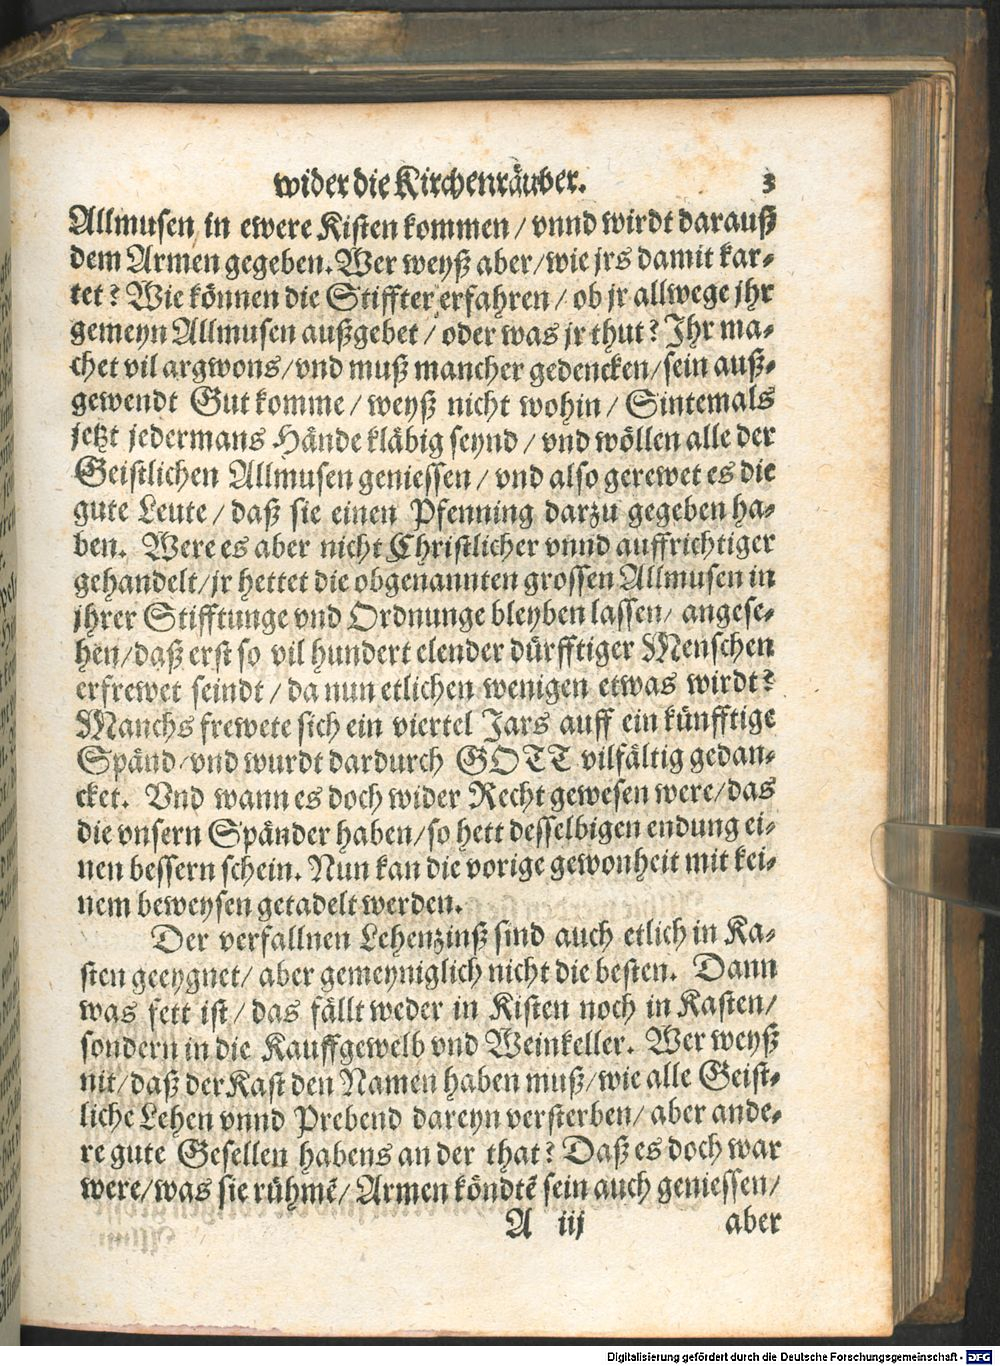 wider die Kirchenräuber. 3
Allmusen in ewere Kisten kommen / vnnd wirdt darauß
dem Armen gegeben. Wer weyß aber / wie jrs damit kar-
tet? Wie können die Stiffter erfahren / ob jr allwege jhr
gemeyn Allmusen außgebet / oder was jr thut? Ihr ma-
chet vil argwons / vnd muß mancher gedencken / sein auß-
gewendt Gut komme / weyß nicht wohin / Sintemals
jetzt jedermans Hände kläbig seynd / vnd wöllen alle der
Geistlichen Allmusen geniessen / vnd also gerewet es die
gute Leute / daß sie einen Pfenning darzu gegeben ha-
ben. Were es aber nicht Christlicher vnnd auffrichtiger
gehandelt / jr hettet die obgenannten grossen Allmusen in
jhrer Stifftunge vnd Ordnunge bleyben lassen / angese-
hen / daß erst so vil hundert elender dürfftiger Menschen
erfrewet seindt / da nun etlichen wenigen etwas wirdt?
Manchs frewete sich ein viertel Jars auff ein künfftige
Spänd / vnd wurdt dardurch GOTT vilfältig gedan-
cket. Vnd wann es doch wider Recht gewesen were / das
die vnsern Spänder haben / so hett desselbigen endung ei-
nen bessern schein. Nun kan die vorige gewonheit mit kei-
nem beweysen getadelt werden.
Der verfallnen Lehenzinß sind auch etlich in Ka-
sten geeygnet / aber gemeyniglich nicht die besten. Dann
was fett ist / das fällt weder in Kisten noch in Kasten /
sondern in die Kauffgewelb vnd Weinkeller. Wer weyß
nit / daß der Kast den Namen haben muß / wie alle Geist-
liche Lehen vnnd Prebend dareyn versterben / aber ande-
re gute Gesellen habens an der that? Daß es doch war
were / was sie rühmē / Armen köndtē sein auch geniessen /
A iij aber
Digitalisierung gefördert durch die Deutsche Forschungsgemeinschaft - DFG